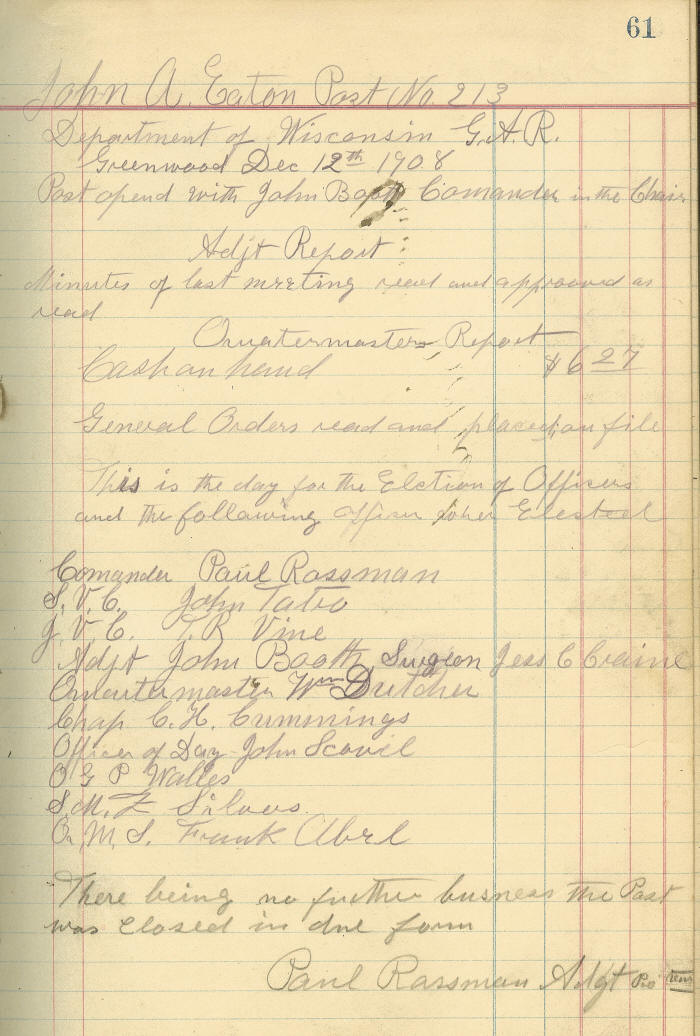 61
John A. Eaton Post No. 213
Department of Wisconsin G.A.R.
Greenwood Dec 12th 1908
Post opend with John Booth Comander in the Chair
Adjt Report
Minutes of last meeting read and approved as
read
Quatermasters Report
Cash on hand $6 27
General Orders read and placed on file
This is the day for the Elction of Officers
and the following officer wher Elected
Comander Paul Rossman
S. V. C. John Tatro
J. V. C. T. R Vine
Adjt John Booth Surgeon Jess C Craine
Quartermaster Wm Dutcher
Chap. C. H. Cummings
Officer of Day John Scovil
O G P Walles
S. M. F Silvers
Q. M. S. Frank Abel
There being no further busness the Post
was closed in due form
Paul Rossman Adgt Pro